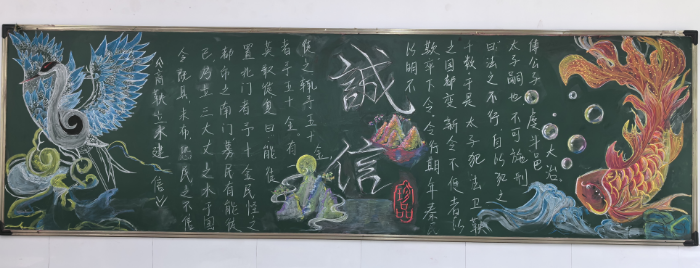 《商鞅立木建信》
令既具未布恐民之不信
已为立三丈之木于国
都市之南门募民有能徙
置北门者予十金民怪之
莫敢徙复曰能徙
者予五十金有
徙之辄予五十金
誠信
以明不
数卒下令令行期年秦民
之国都言新令不便者以
十数于是太子犯法卫鞅
曰法之不行自上犯之
太子嗣也不可施刑
傅公子
大治